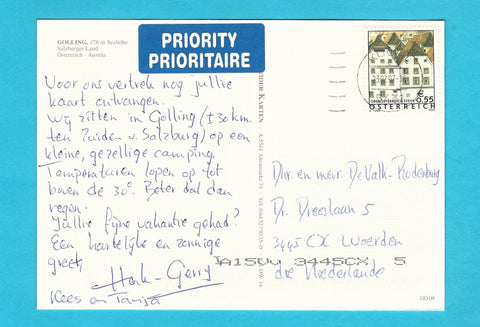 GOLLING, 476 m Seehöhe
Salzburger Land
Österreich - Austria
PRIORITY
PRIORITAIRE
Voor ons vertrek nog jullie
kaart ontvangen.
Wij zitten in Golling (± 30 km.
ten Zuiden v. Salzburg) op een
kleine, gezellige camping.
Temperaturen lopen op tot
boven de 30°. Beter dat dan
regen.
Jullie fijne vakantie gehad?
Een hartelijke en zonnige
groet,
Henk - Gerry
Kees en
0,55
ÖSTERREICH
Dhr. en mevr. De Valk-Rodenburg
Dr. Dreeslaan 5
3445 CX Woerden
die Niederlande
3445CX 5
GO 08